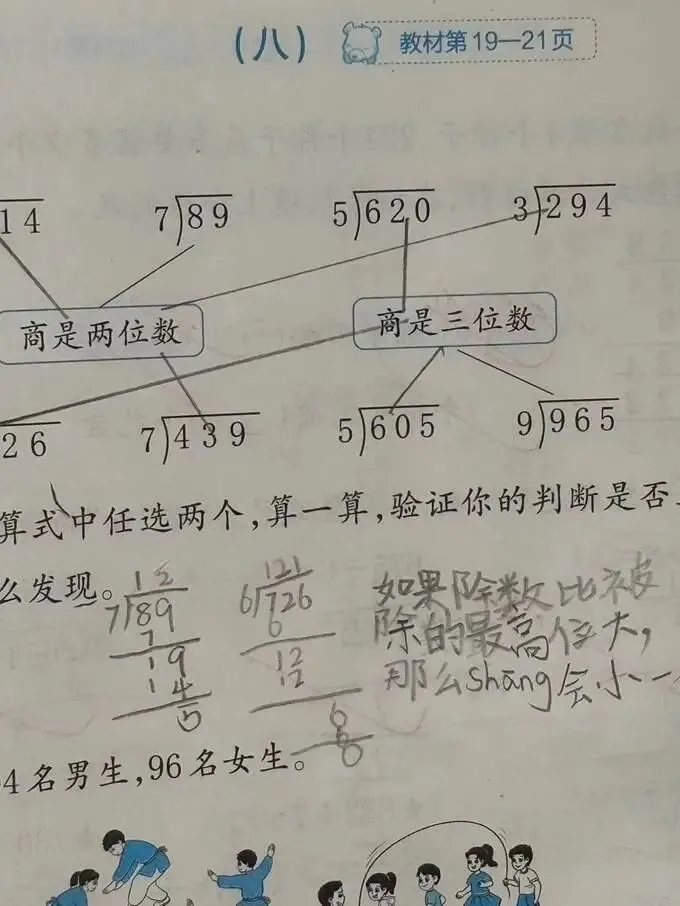 （八） 教材第19—21页
14 7)89 5)620 3)294
商是两位数 商是三位数
26 7)439 5)605 9)965
算式中任选两个,算一算,验证你的判断是否
么发现。
12 121
7)89 6)726 如果除数比被
7 6 除的最高位大,
19 12 那么shāng会小一
14 12
5 6
6
0
4名男生,96名女生。